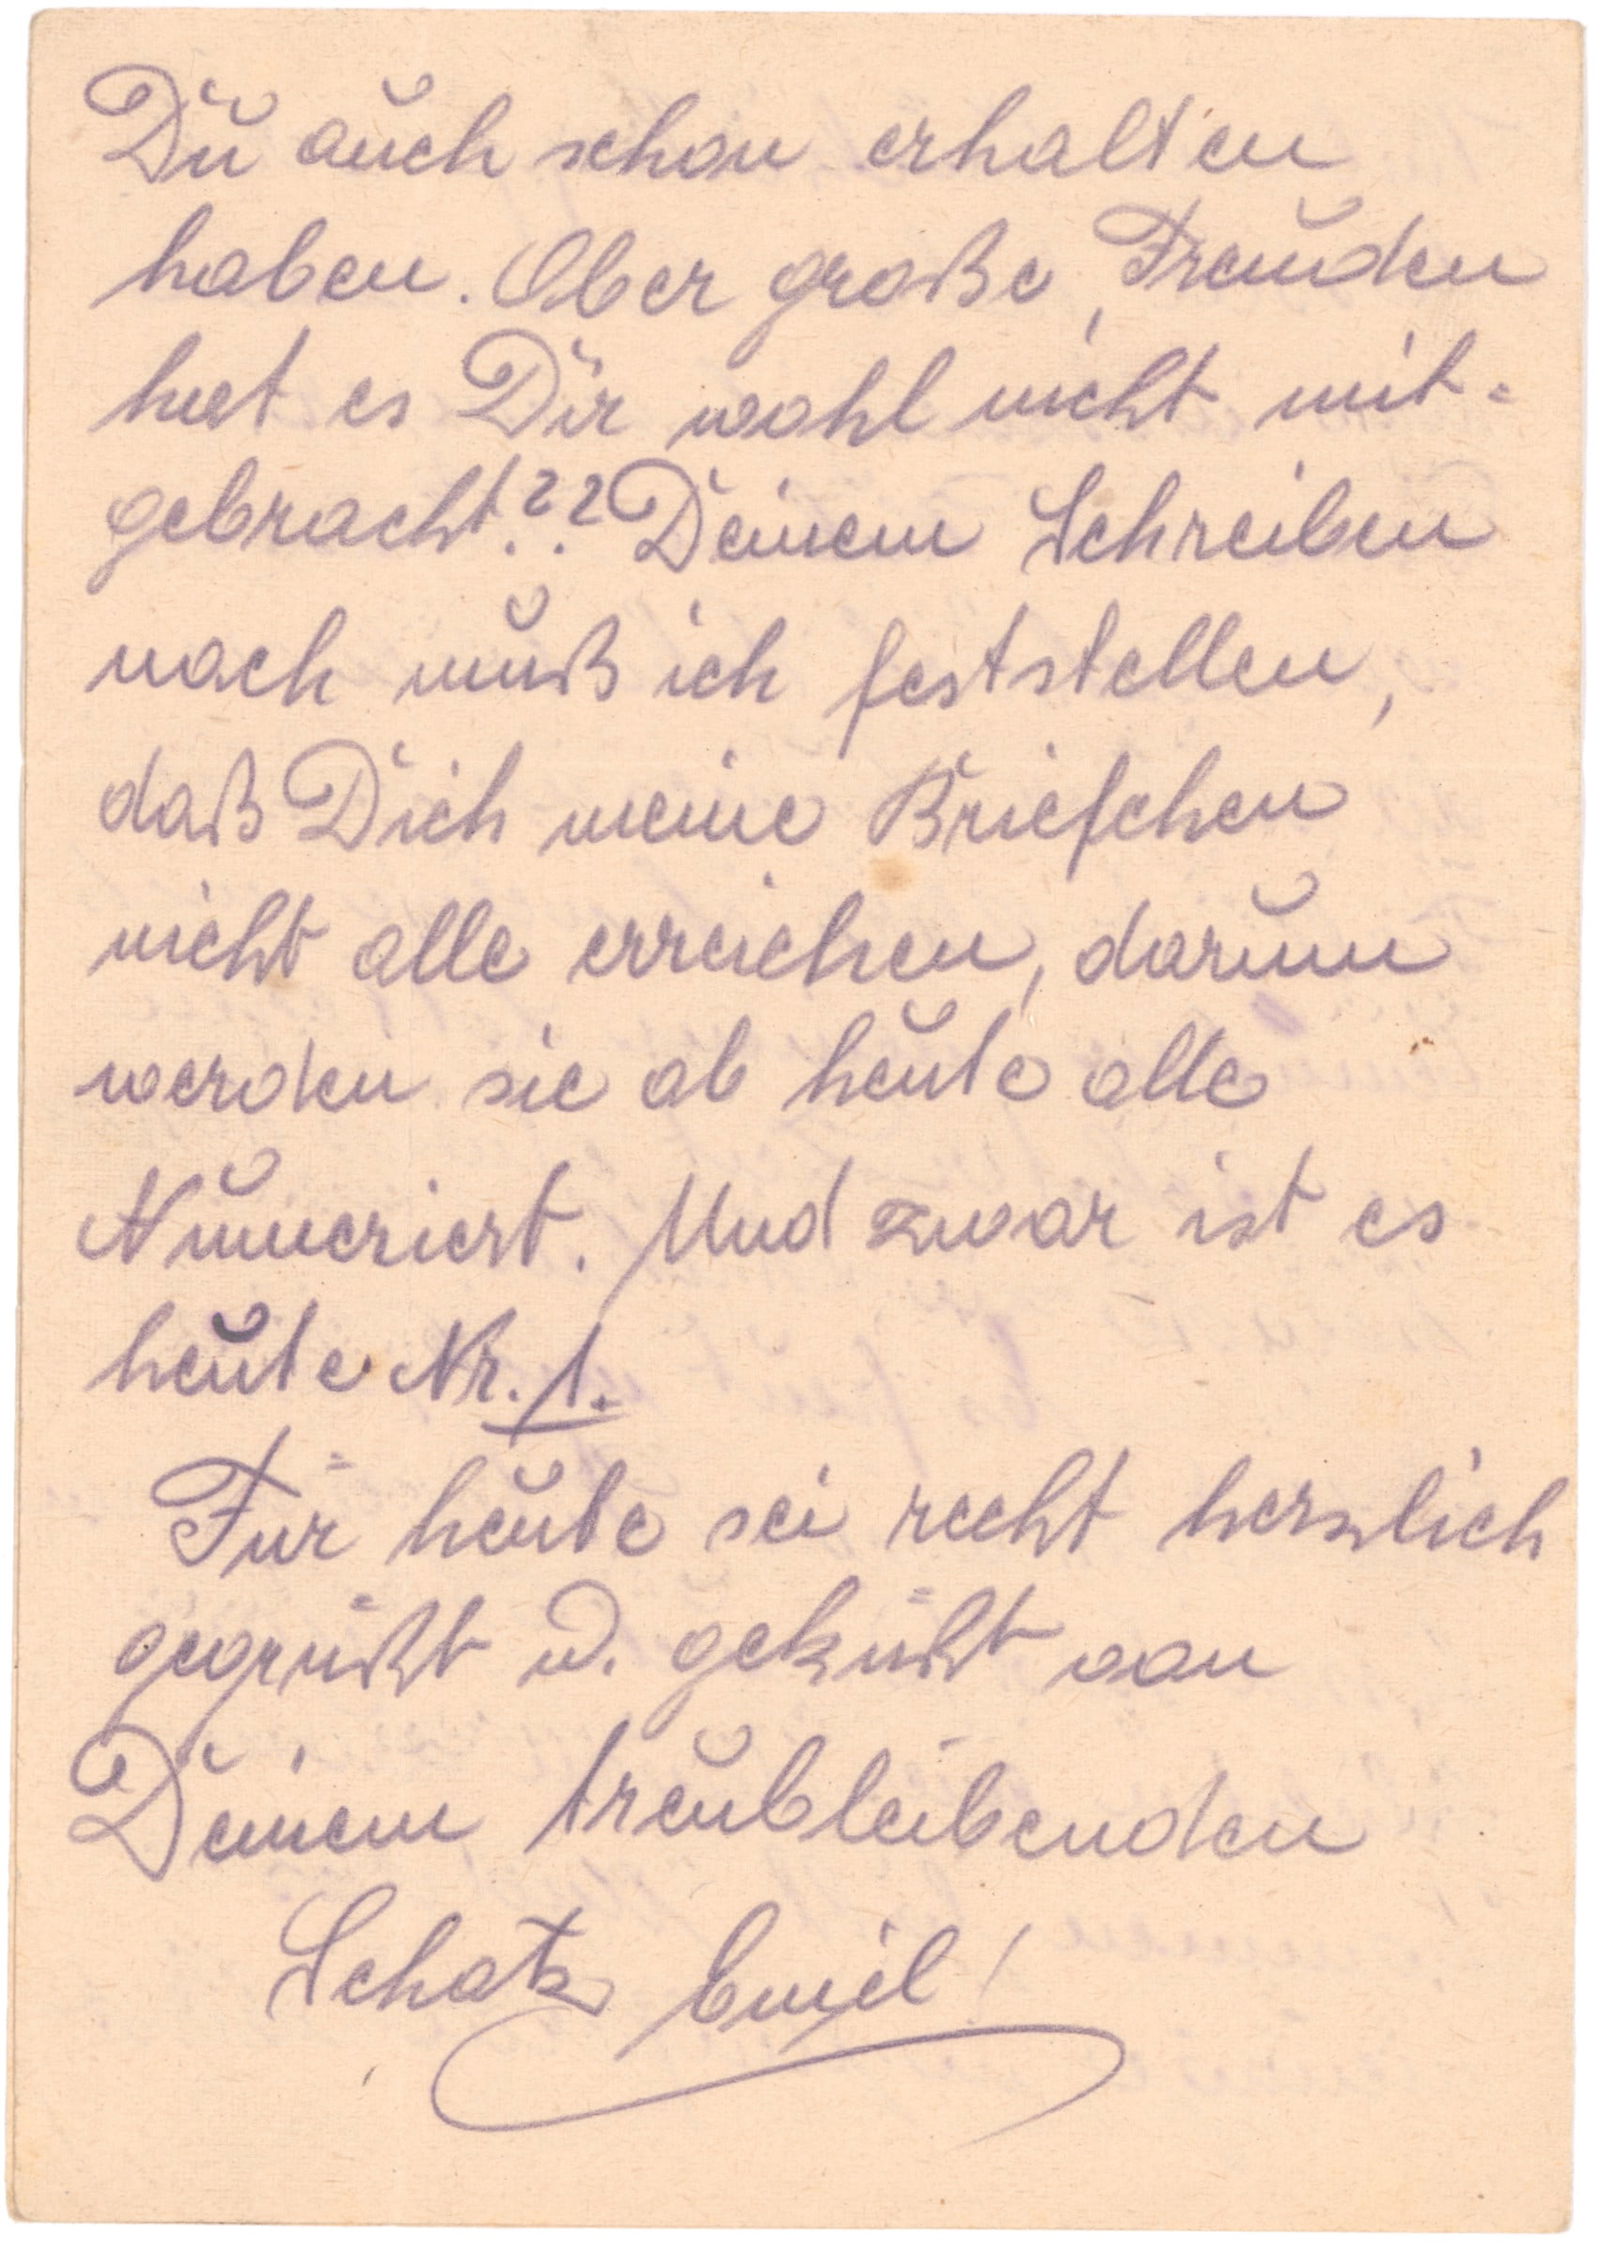 Du auch schon erhalten
haben. Ober große, Freuden
hat es Dir wohl nicht mit-
gebracht?? Deinem Schreiben
nach muß ich feststellen,
daß Dich meine Briefchen
nicht alle erreichen, darum
werden sie ab heute alle
Numeriert. Und zwar ist es
heute Nr. 1.
Für heute sei recht herzlich
gegrüßt u. geküßt von
Deinem treubleibenden
Schatz Emil!